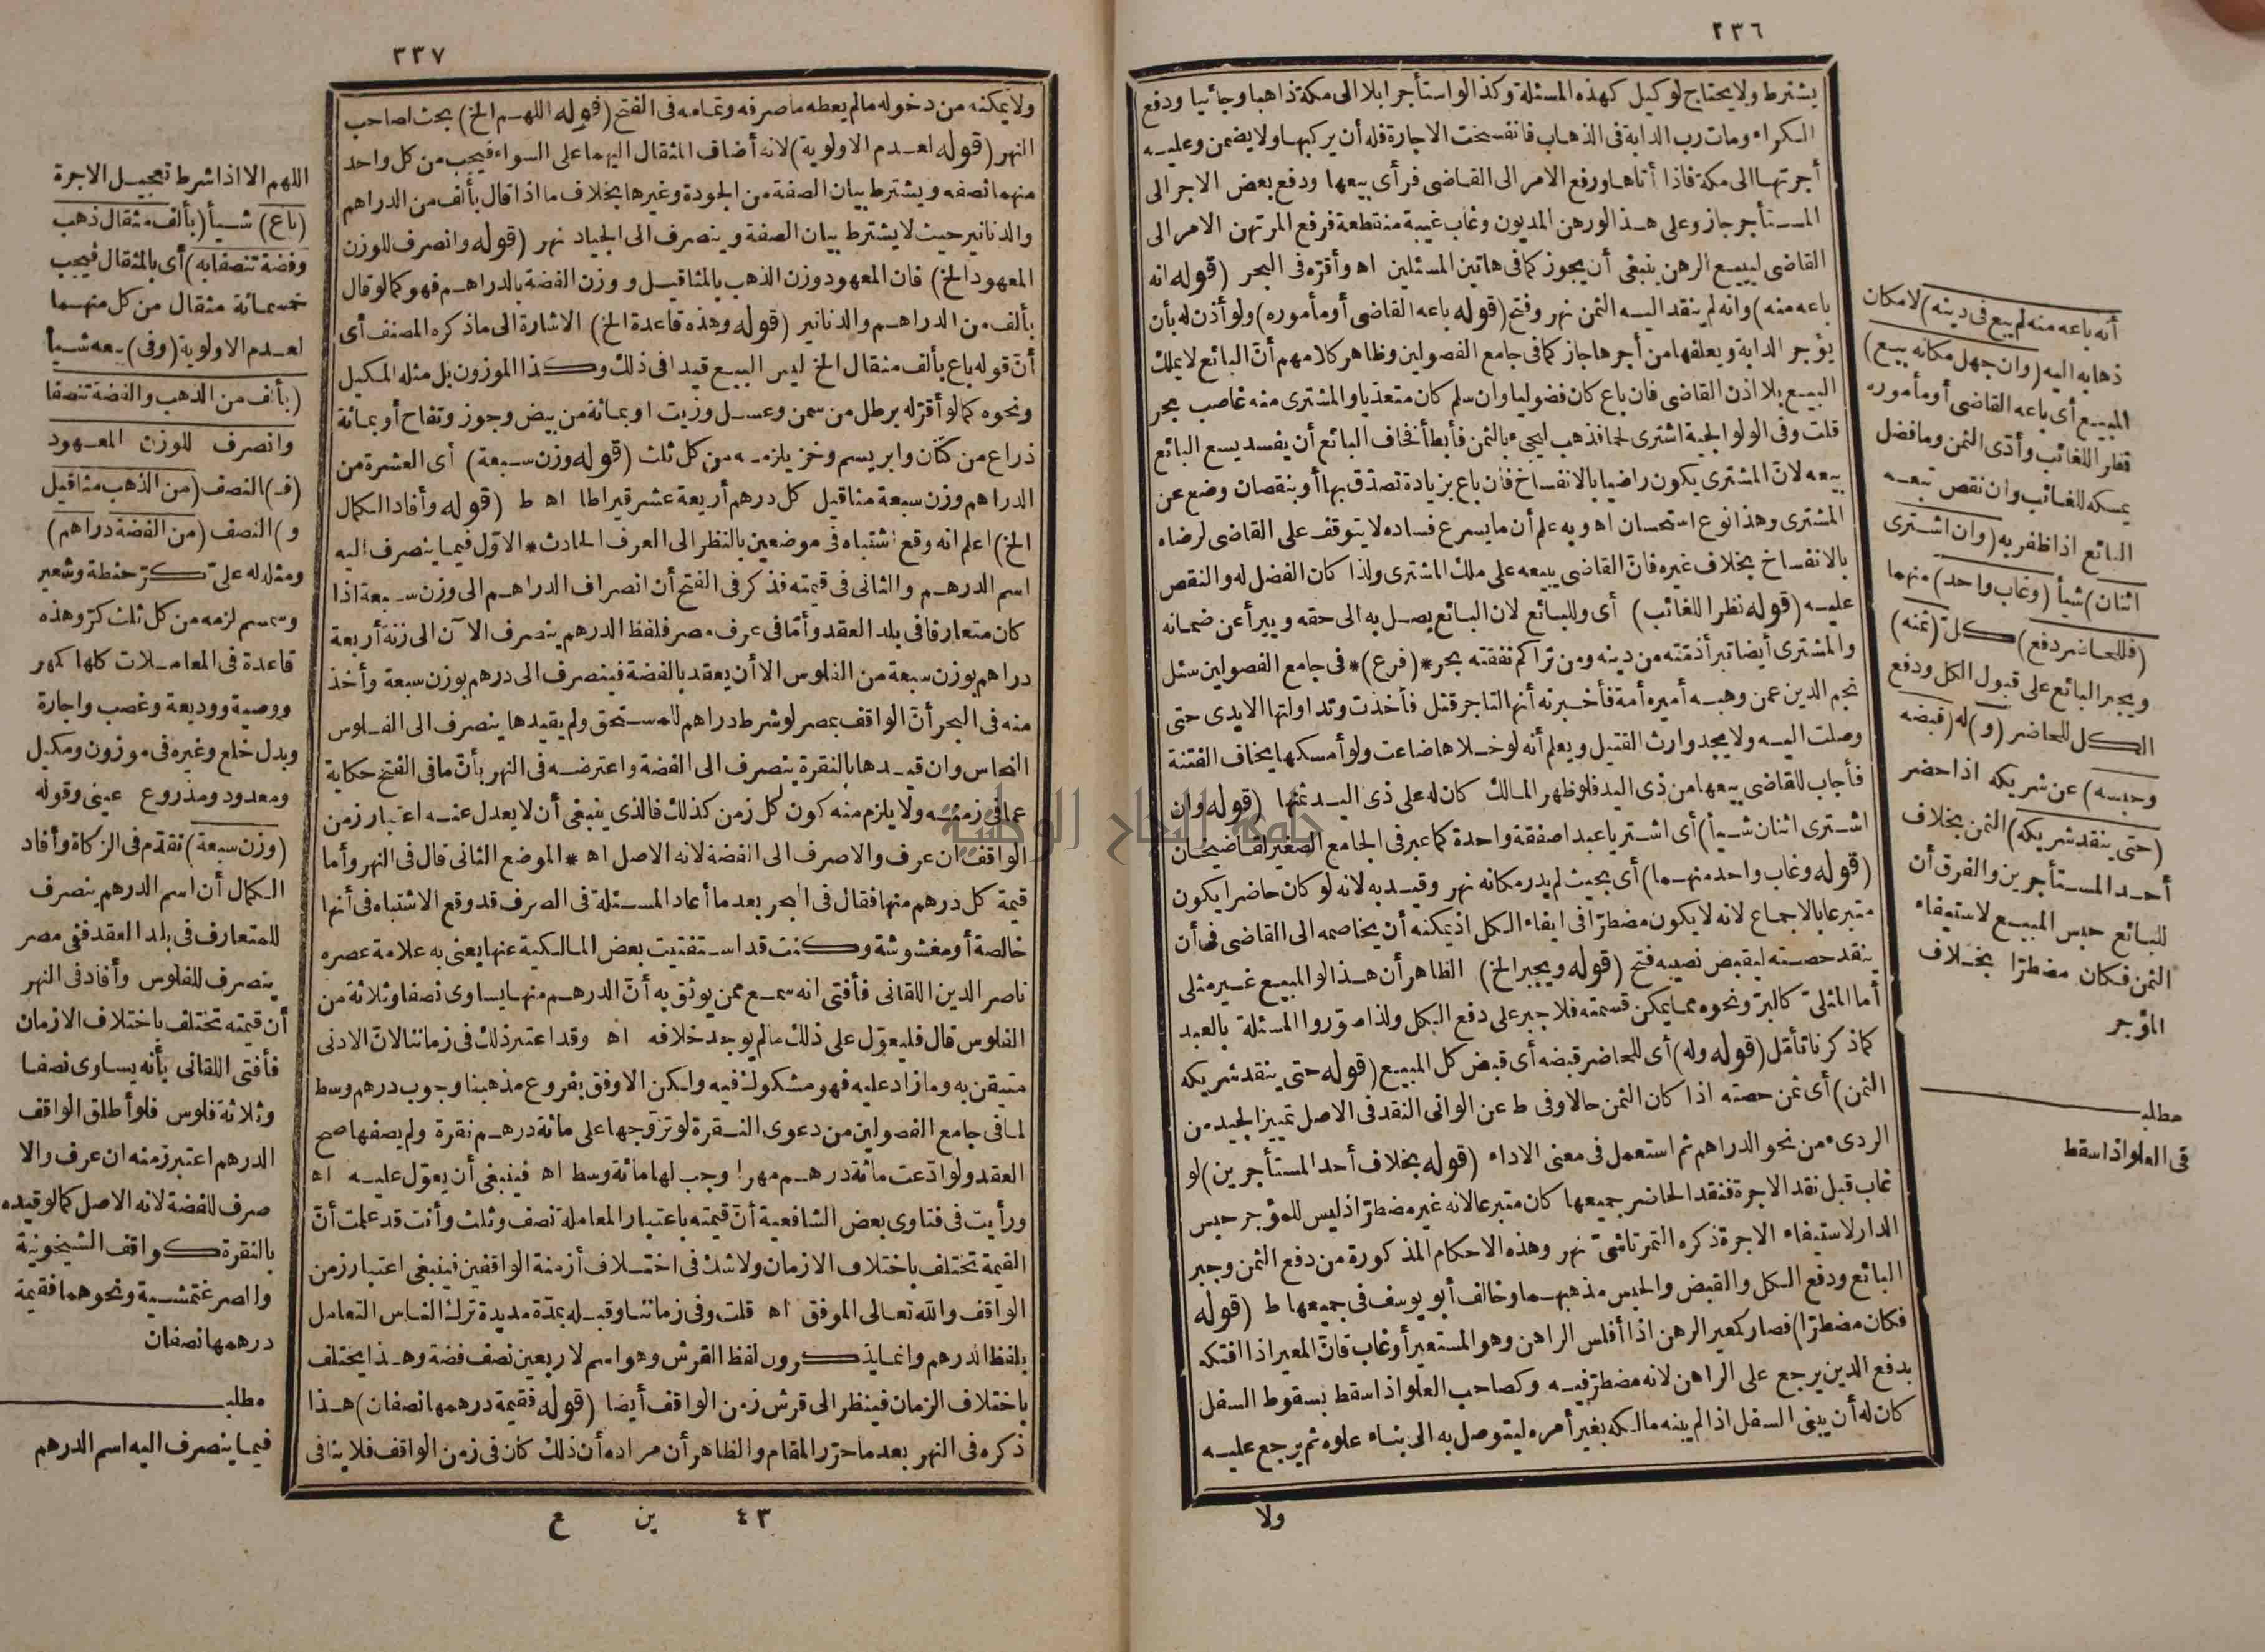 ٢٣٦
يشترط ولا يحتاج لوكيل كهذه المسئلة وكذا لو استأجر ابلا الى مكة ذاهبا وجائيا ودفع
الكراء ومات رب الدابة فى الذهاب فانفسخت الاجارة فله أن يركبها ولا يضمن وعليه
أجرتها الى مكة فاذا أتاها ورفع الامر الى القاضى فرأى بيعها ودفع بعض الاجر الى
المستأجر جاز وعلى هذا لو رهن المديون وغاب غيبة منقطعة فرفع المرتهن الامر الى
القاضى ليبيع الرهن ينبغى أن يجوز كما فى هاتين المسئلتين اه وأقرّه فى البحر (قوله انه
باعه منه) وانه لم ينقد اليه الثمن نهر وفتح (قوله باعه القاضى أو مأموره) ولو أذن له بأن
يؤجر الدابة ويعلفها من أجرها جاز كما فى جامع الفصولين وظاهر كلامهم أنّ البائع لا يملك
البيع بلا اذن القاضى فان باع كان فضوليا وان سلم كان متعديا والمشترى منه غاصب بحر
قلت وفى الولوالجية اشترى لحما فذهب ليجىء بالثمن فأبطأ فخاف البائع أن يفسد يسع البائع
بيعه لانّ المشترى يكون راضيا بالانفساخ فان باع بزيادة تصدّق بها أو بنقصان وضع عن
المشترى وهذا نوع استحسان اه وبه علم أن ما يسرع فساده لا يتوقف على القاضى لرضاه
بالانفساخ بخلاف غيره فانّ القاضى يبيعه على ملك المشترى ولذا كان الفضل له والنقص
عليه (قوله نظرا للغائب) أى وللبائع لان البائع يصل به الى حقه ويبرأ عن ضمانه
والمشترى أيضا تبرأ ذمّته من دينه ومن تراكم نفقته بحر *(فرع)* فى جامع الفصولين سئل
نجم الدين عمن وهبه أميره أمة فأخبرته أنها لتاجر قتل فأخذت وتداولتها الايدى حتى
وصلت اليه ولا يجد وارث القتيل ويعلم أنه لو خلاها ضاعت ولو أمسكها يخاف الفتنة
فأجاب للقاضى بيعها من ذى اليد فلو ظهر المالك كان له على ذى اليد ثمنها (قوله وان
اشترى اثنان شيأ) أى اشتريا عبدا صفقة واحدة كما عبر فى الجامع الصغير لقاضيخان
(قوله وغاب واحد منهما) أى بحيث لم يدر مكانه نهر وقيد به لانه لو كان حاضرا يكون
متبرعا بالاجماع لانه لا يكون مضطرّا فى ايفاء الكل اذ يمكنه أن يخاصمه الى القاضى فى أن
ينقد حصته ليقبض نصيبه فتح (قوله ويجبر الخ) الظاهر أن هذا لو المبيع غير مثلى
أما المثلىّ كالبرّ ونحوه مما يمكن قسمته فلا جبر على دفع الكل ولذا صوّروا المسئلة بالعبد
كما ذكرنا تأمّل (قوله وله) أى للحاضر قبضه أى قبض كل المبيع (قوله حتى ينقد شريكه
الثمن) أى ثمن حصته اذا كان الثمن حالا وفى ط عن الوانى النقد فى الاصل تمييز الجيد من
الردىء من نحو الدراهم ثم استعمل فى معنى الاداء (قوله بخلاف أحد المستأجرين) لو
غاب قبل نقد الاجرة فنقد الحاضر جميعها كان متبرعا لانه غير مضطرّ اذ ليس للمؤجر حبس
الدار لاستيفاء الاجرة ذكره التمرتاشىّ نهر وهذه الاحكام المذكورة من دفع الثمن وجبر
البائع ودفع الكل والقبض والحبس مذهبهما وخالف أبو يوسف فى جميعها ط (قوله
فكان مضطرّا) فصار كمعير الرهن اذا أفلس الراهن وهو المستعير أو غاب فانّ المعير اذا افتكه
بدفع الدين يرجع على الراهن لانه مضطرّ فيه وكصاحب العلو اذا سقط بسقوط السفل
كان له أن يبنى السفل اذا لم يبنه مالكه بغير أمره ليتوصل به الى بناء علوه ثم يرجع عليه
ولا
أنه باعه منه لم يبع فى دينه) لامكان
ذهابه اليه (وان جهل مكانه بيع)
المبيع أى باعه القاضى أو مأموره
نظرا للغائب وأدّى الثمن وما فضل
يمسكه للغائب وان نقص تبعه
البائع اذا ظفر به (وان اشترى
اثنان) شيأ (وغاب واحد) منهما
(فللحاضر دفع) كلّ (ثمنه)
ويجبر البائع على قبول الكل ودفع
الكل للحاضر (و) له (قبضه
وحبسه) عن شريكه اذا حضر
(حتى ينقد شريكه) الثمن بخلاف
أحد المستأجرين والفرق أن
للبائع حبس المبيع لاستيفاء
الثمن فكان مضطرّا بخلاف
المؤجر
مطلب
فى العلو اذا سقط
٣٣٧
ولا يمكنه من دخوله ما لم يعطه ما صرفه وتمامه فى الفتح (قوله اللهم الخ) بحث لصاحب
النهر (قوله لعدم الاولوية) لانه أضاف المثقال اليهما على السواء فيجب من كل واحد
منهما نصفه ويشترط بيان الصفة من الجودة وغيرها بخلاف ما اذا قال بألف من الدراهم
والدنانير حيث لا يشترط بيان الصفة وينصرف الى الجياد نهر (قوله وانصرف للوزن
المعهود الخ) فان المعهود وزن الذهب بالمثاقيل ووزن الفضة بالدراهم فهو كما لو قال
بألف من الدراهم والدنانير (قوله وهذه قاعدة الخ) الاشارة الى ما ذكره المصنف أى
أنّ قوله باع بألف مثقال الخ ليس البيع قيدا فى ذلك وكذا الموزون بل مثله المكيل
ونحوه كما لو أقرّ له برطل من سمن وعسل وزيت او بمائة من بيض وجوز وتفاح أو بمائة
ذراع من كتّان وابريسم وخز يلزمه من كل ثلث (قوله وزن سبعة) أى العشرة من
الدراهم وزن سبعة مثاقيل كل درهم أربعة عشر قيراطا اه ط (قوله وأفاد الكمال
الخ) اعلم انه وقع اشتباه فى موضعين بالنظر الى العرف الحادث * الاوّل فيما ينصرف اليه
اسم الدرهم والثانى فى قيمته فذكر فى الفتح أن انصراف الدراهم الى وزن سبعة اذا
كان متعارفا فى بلد العقد وأمّا فى عرف مصر فلفظ الدرهم ينصرف الآن الى زنة أربعة
دراهم بوزن سبعة من الفلوس الا أن يعقد بالفضة فينصرف الى درهم بوزن سبعة وأخذ
منه فى البحر أنّ الواقف بمصر لو شرط دراهم للمستحق ولم يقيدها ينصرف الى الفلوس
النحاس وان قيدها بالنقرة ينصرف الى الفضة واعترضه فى النهر بأنّ ما فى الفتح حكاية
عما فى زمنه ولا يلزم منه كون كل زمن كذلك فالذى ينبغى أن لا يعدل عنه اعتبار زمن
الواقف ان عرف والا صرف الى الفضة لانه الاصل اه * الموضع الثانى قال فى النهر وأما
قيمة كل درهم منها فقال فى البحر بعد ما أعاد المسئلة فى الصرف قد وقع الاشتباه فى أنها
خالصة أو مغشوشة وكنت قد استفتيت بعض المالكية عنها يعنى به علامة عصره
ناصر الدين اللقانى فأفتى انه سمع ممن يوثق به أنّ الدرهم منها يساوى نصفا وثلاثة من
الفلوس قال فليعوّل على ذلك ما لم يوجد خلافه اه وقد اعتبر ذلك فى زماننا لانّ الادنى
متيقن به وما زاد عليه فهو مشكوك فيه ولكن الاوفق بفروع مذهبنا وجوب درهم وسط
لما فى جامع الفصولين من دعوى النقرة لو تزوّجها على مائة درهم نقرة ولم يصفها صح
العقد ولو ادّعت مائة درهم مهرا وجب لها مائة وسط اه فينبغى أن يعوّل عليه اه
ورأيت فى فتاوى بعض الشافعية أنّ قيمته باعتبار المعاملة نصف وثلث وأنت قد علمت أنّ
القيمة تختلف باختلاف الازمان ولا شك فى اختلاف أزمنة الواقفين فينبغى اعتبار زمن
الواقف والله تعالى الموفق اه قلت وفى زماننا وقبله بمدّة مديدة ترك الناس التعامل
بلفظ الدرهم وانما يذكرون لفظ القرش وهو اسم لاربعين نصف فضة وهذا يختلف
باختلاف الزمان فينظر الى قرش زمن الواقف أيضا (قوله فقيمة درهمها نصفان) هذا
ذكره فى النهر بعد ما حرّر المقام والظاهر أن مراده أن ذلك كان فى زمن الواقف فلا ينافى
٤٣ ين ع
اللهم الا اذا شرط تعجيل الاجرة
(باع) شيأ (بألف مثقال ذهب
وفضة تنصفا به) أى بالمثقال فيجب
خمسمائة مثقال من كل منهما
لعدم الاولوية (وفى) بيعه شيأ
(بألف من الذهب والفضة تنصفا
وانصرف للوزن المعهود
(فـ) النصف (من الذهب مثاقيل
و) النصف (من الفضة دراهم)
ومثله له علىّ كرّ حنطة وشعير
وسمسم لزمه من كل ثلث كرّ وهذه
قاعدة فى المعاملات كلها كمهر
ووصية ووديعة وغصب واجارة
وبدل خلع وغيره فى موزون ومكيل
ومعدود ومذروع عينى وقوله
(وزن سبعة) تقدّم فى الزكاة وأفاد
الكمال أن اسم الدرهم ينصرف
للمتعارف فى بلد العقد ففى مصر
ينصرف للفلوس وأفاد فى النهر
أن قيمته تختلف باختلاف الازمان
فأفتى اللقانى بأنه يساوى نصفا
وثلاثة فلوس فلو أطلق الواقف
الدرهم اعتبر زمنه ان عرف والا
صرف للفضة لانه الاصل كما لو قيده
بالنقرة كواقف الشيخونية
والصرغتمشية ونحوهما فقيمة
درهمها نصفان
مطلب
فيما ينصرف اليه اسم الدرهم
جامعة النجاح الوطنية